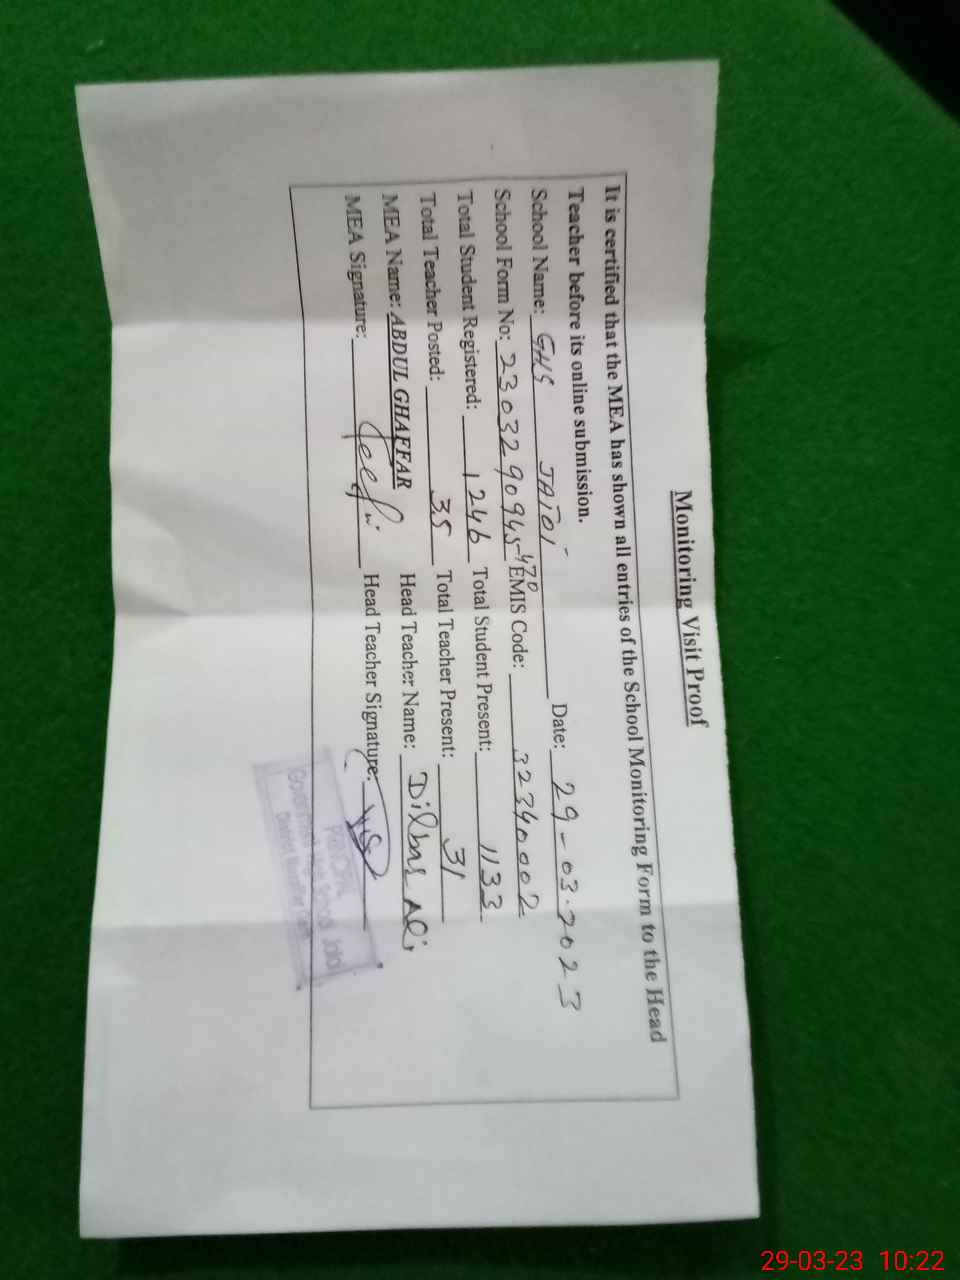 Monitoring Visit Proof
It is certified that the MEA has shown all entries of the School Monitoring Form to the Head
Teacher before its online submission.
School Name: GHS JATOI Date: 29-03-2023
School Form No: 2303290945-470 EMIS Code: 32340002
Total Student Registered: 1246 Total Student Present: 1133
Total Teacher Posted: 35 Total Teacher Present: 31
MEA Name: ABDUL GHAFFAR Head Teacher Name: Dilbar Ali
MEA Signature: Head Teacher Signature:
PRINCIPAL
Government High School Jatoi
District Muzaffar Garh
29-03-23 10:22